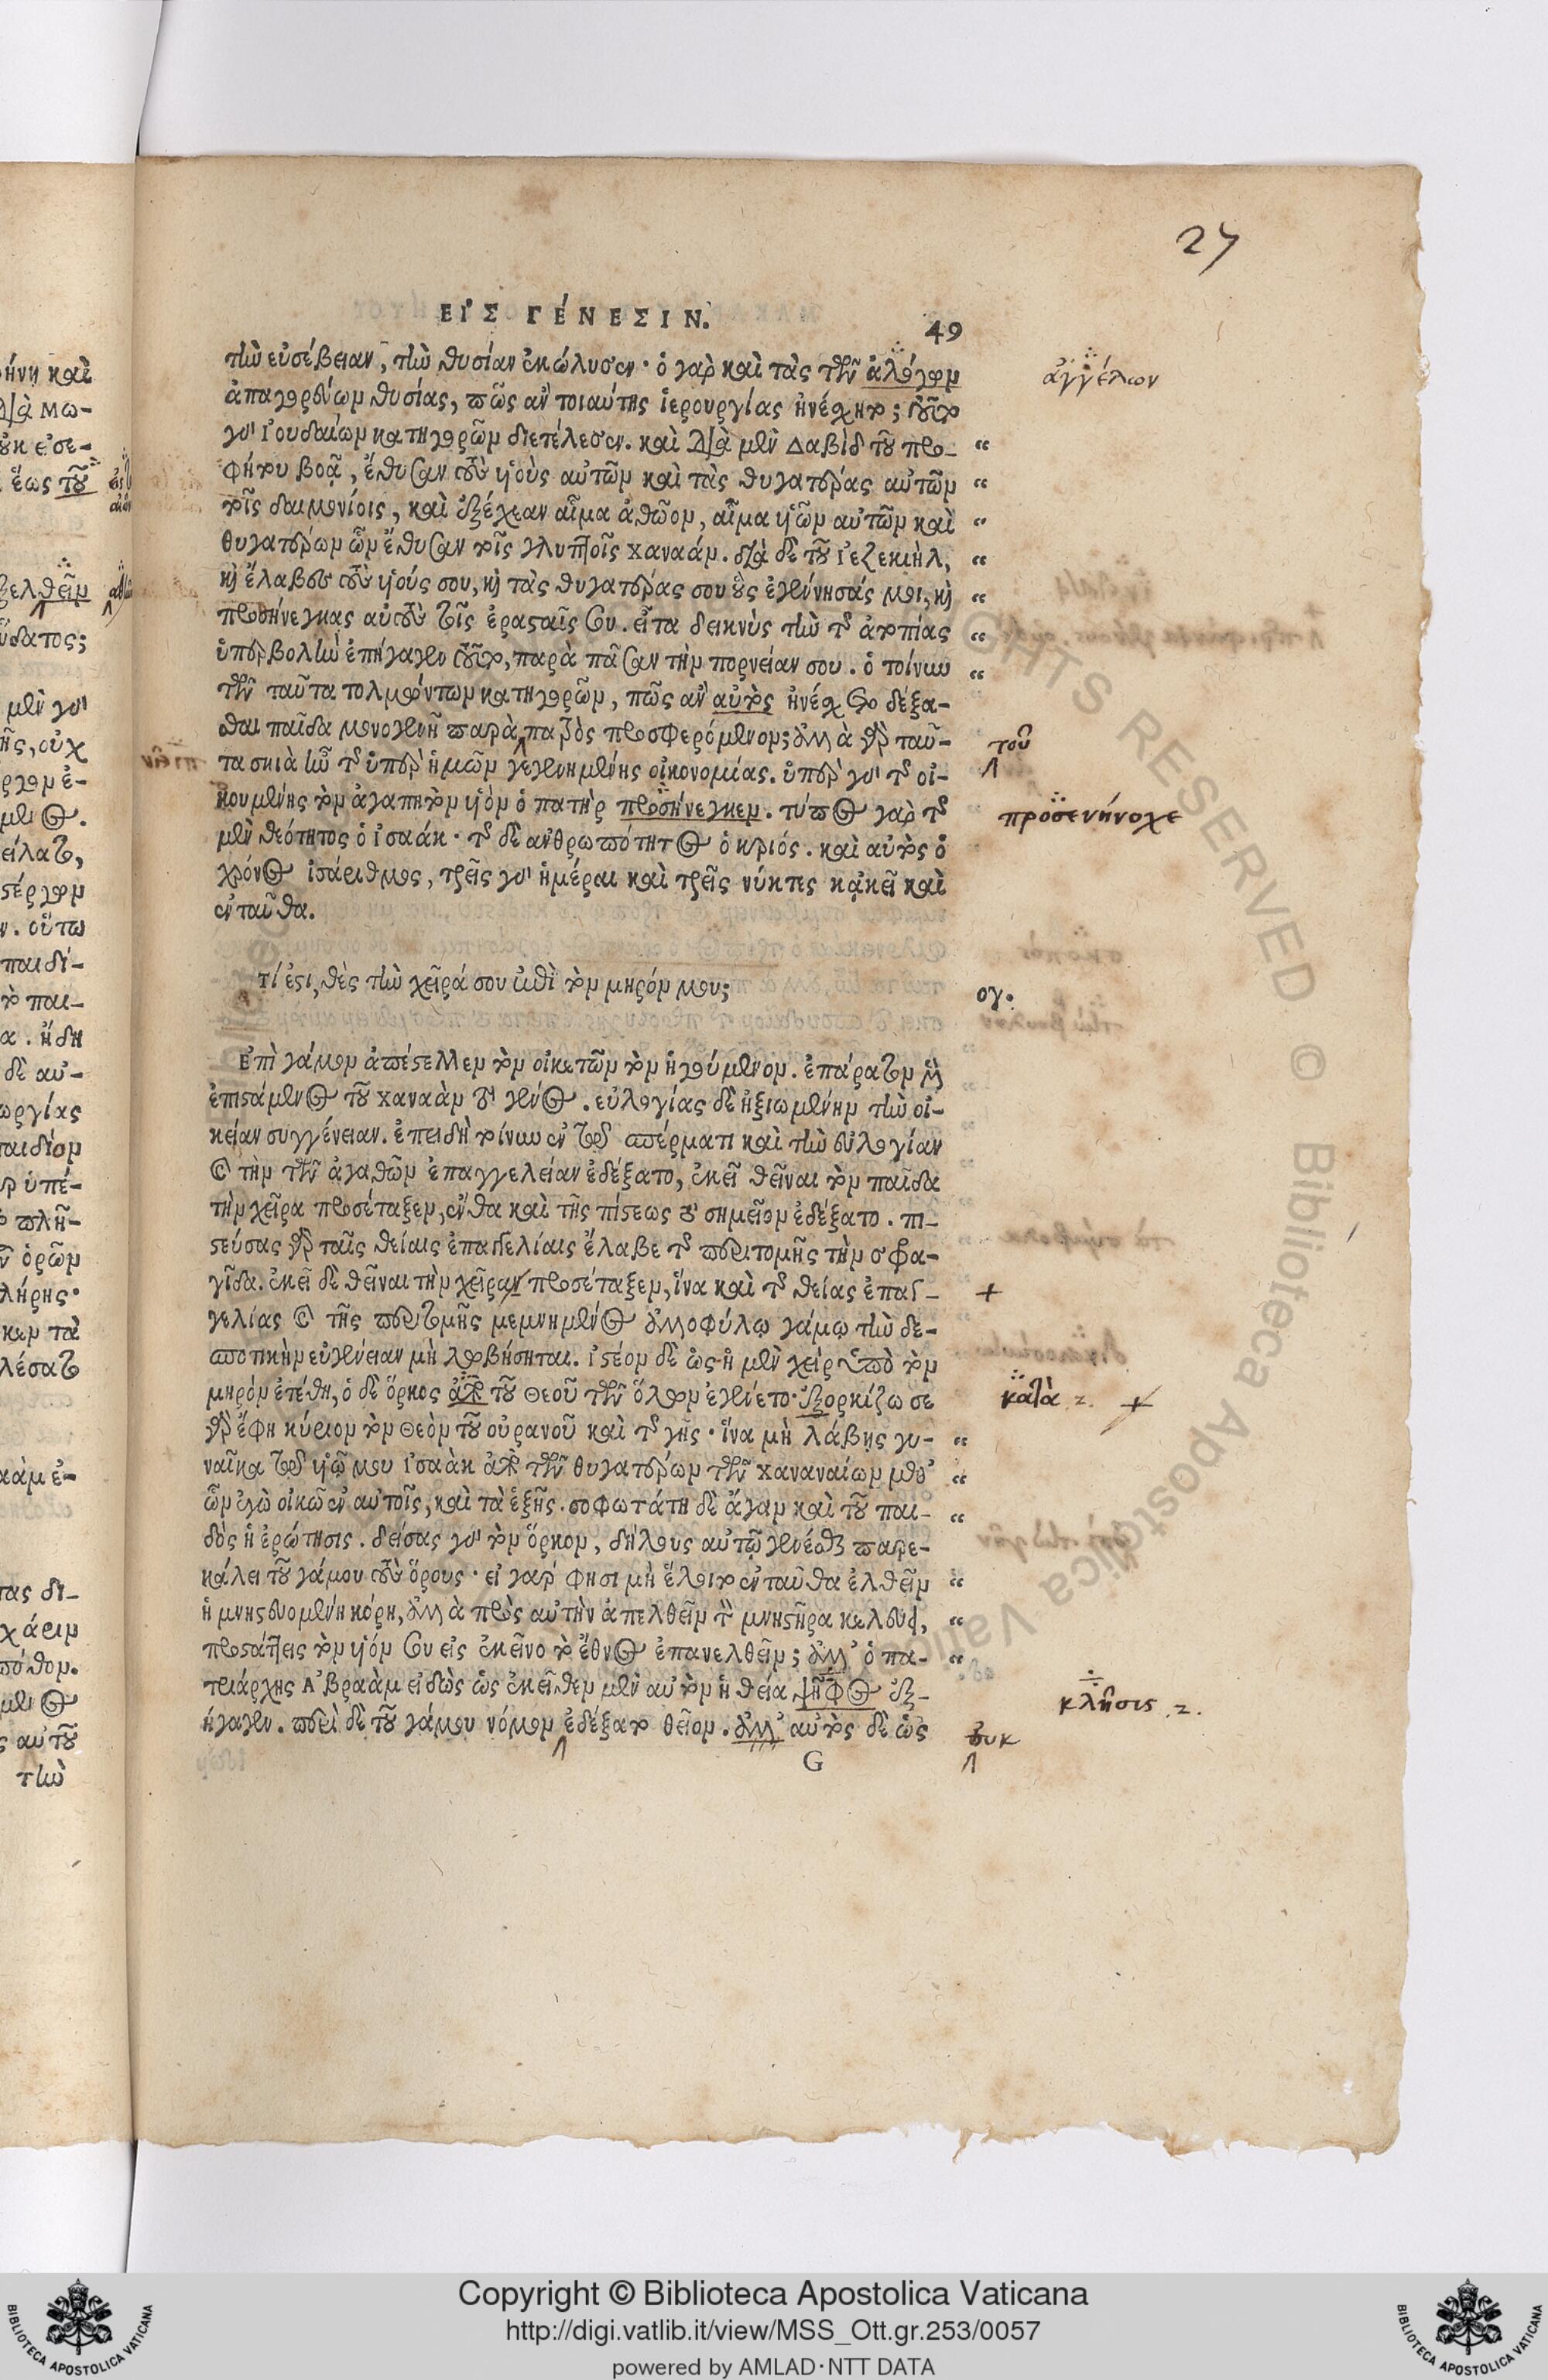 27
ΕἸΣ ΓΈΝΕΣΙΝ.
49
τὴν εὐσέβειαν, τὴν θυσίαν ἐκώλυσεν· ὁ γὰρ καὶ τὰς τῶν ἀλόγων
ἀγγέλων
ἀπαγορεύων θυσίας, πῶς ἂν τοιαύτης ἱερουργίας ἠνέχετο; τοῦτο
γὰρ Ἰουδαίων κατηγορῶν διετέλεσεν. καὶ διὰ μὲν Δαβὶδ τοῦ προ- “
φήτου βοᾷ, ἔθυσαν τοὺς υἱοὺς αὐτῶν καὶ τὰς θυγατέρας αὐτῶν “
τοῖς δαιμονίοις, καὶ ἐξέχεαν αἷμα ἀθῶον, αἷμα υἱῶν αὐτῶν καὶ “
θυγατέρων ὧν ἔθυσαν τοῖς γλυπτοῖς Χαναάν. διὰ δὲ τοῦ Ἰεζεκιὴλ, “
καὶ ἔλαβες τοὺς υἱούς σου, καὶ τὰς θυγατέρας σου οὓς ἐγέννησάς μοι, καὶ “
προσήνεγκας αὐτοὺς τοῖς ἐρασταῖς σου. εἶτα δεικνὺς τὴν τῆς ἀτοπίας “
ὑπερβολὴν ἐπήγαγεν τοῦτο, παρὰ πᾶσαν τὴν πορνείαν σου. ὁ τοίνυν “
τῶν ταῦτα τολμώντων κατηγορῶν, πῶς ἂν αὐτὸς ἠνέσχετο δέξα-
σθαι παῖδα μονογενῆ παρὰ πατρὸς προσφερόμενον; ἀλλὰ γὰρ ταῦ-
τοῦ
τα σκιὰ ἦν τῆς ὑπὲρ ἡμῶν γεγενημένης οἰκονομίας. ὑπὲρ γὰρ τῆς οἰ-
κουμένης τὸν ἀγαπητὸν υἱὸν ὁ πατὴρ προσήνεγκεν. τύπος γὰρ τῆς
προσενήνοχε
μὲν θεότητος ὁ Ἰσαάκ· τῆς δὲ ἀνθρωπότητος ὁ κριός. καὶ αὐτὸς ὁ
χρόνος ἰσάριθμος, τρεῖς γὰρ ἡμέραι καὶ τρεῖς νύκτες κᾀκεῖ καὶ
ἐνταῦθα.
τί ἐστι, θὲς τὴν χεῖρά σου ἐπὶ τὸν μηρόν μου;
ογ.
Ἐπὶ γάμον ἀπέστελλεν τὸν οἰκετῶν τὸν ἡγούμενον. ἐπάρατον δὲ
ἐπιστάμενος τοῦ Χαναὰν τὸ γένος. εὐλογίας δὲ ἠξιωμένην τὴν οἰ-
κείαν συγγένειαν. ἐπειδὴ τοίνυν ἐν τῷ σπέρματι καὶ τὴν εὐλογίαν
καὶ τὴν τῶν ἀγαθῶν ἐπαγγελείαν ἐδέξατο, ἐκεῖ θεῖναι τὸν παῖδα
τὴν χεῖρα προσέταξεν, ἔνθα καὶ τῆς πίστεως τὸ σημεῖον ἐδέξατο. πι-
στεύσας γὰρ ταῖς θείαις ἐπαγγελίαις ἔλαβε τῆς περιτομῆς τὴν σφρα-
γῖδα. ἐκεῖ δὲ θεῖναι τὴν χεῖραν προσέταξεν, ἵνα καὶ τῆς θείας ἐπαγ- +
γελίας καὶ τῆς περιτομῆς μεμνημένος ἀλλοφύλῳ γάμῳ τὴν δε-
σποτικὴν εὐγένειαν μὴ λωβήσηται. ἰστέον δὲ ὡς ἡ μὲν χεὶρ ὑπὸ τὸν
μηρὸν ἐτέθη, ὁ δὲ ὅρκος ἀπὸ τοῦ Θεοῦ τῶν ὅλων ἐγένετο· ἐξορκίζω σε
κατὰ 2. +
γὰρ ἔφη κύριον τὸν Θεὸν τοῦ οὐρανοῦ καὶ τῆς γῆς· ἵνα μὴ λάβῃς γυ- “
ναῖκα τῷ υἱῷ μου Ἰσαὰκ ἀπὸ τῶν θυγατέρων τῶν Χαναναίων μεθ’ “
ὧν ἐγὼ οἰκῶ ἐν αὐτοῖς, καὶ τὰ ἑξῆς. σοφωτάτη δὲ ἄγαν καὶ τοῦ παι- “
δὸς ἡ ἐρώτησις. δείσας γὰρ τὸν ὅρκον, δήλους αὐτῷ γενέσθαι παρε-
κάλει τοῦ γάμου τοὺς ὅρους· εἰ γάρ φησι μὴ ἕλοιτο ἐνταῦθα ἐλθεῖν “
ἡ μνηστευομένη κόρη, ἀλλὰ πρὸς αὐτὴν ἀπελθεῖν τὸν μνηστῆρα κελεύει, “
προστάττεις τὸν υἱόν σου εἰς ἐκεῖνο τὸ ἔθνος ἐπανελθεῖν; ἀλλ’ ὁ πα- “
τριάρχης Ἀβραὰμ εἰδὼς ὡς ἐκεῖθεν μὲν αὐτὸν ἡ θεία ψῆφος ἐξ-
κλῆσις 2.
ήγαγεν. περὶ δὲ τοῦ γάμου νόμον ἐδέξατο θεῖον. ἀλλ’ αὐτὸς δὲ ὡς
οὐκ
G
Copyright © Biblioteca Apostolica Vaticana
http://digi.vatlib.it/view/MSS_Ott.gr.253/0057
powered by AMLAD·NTT DATA